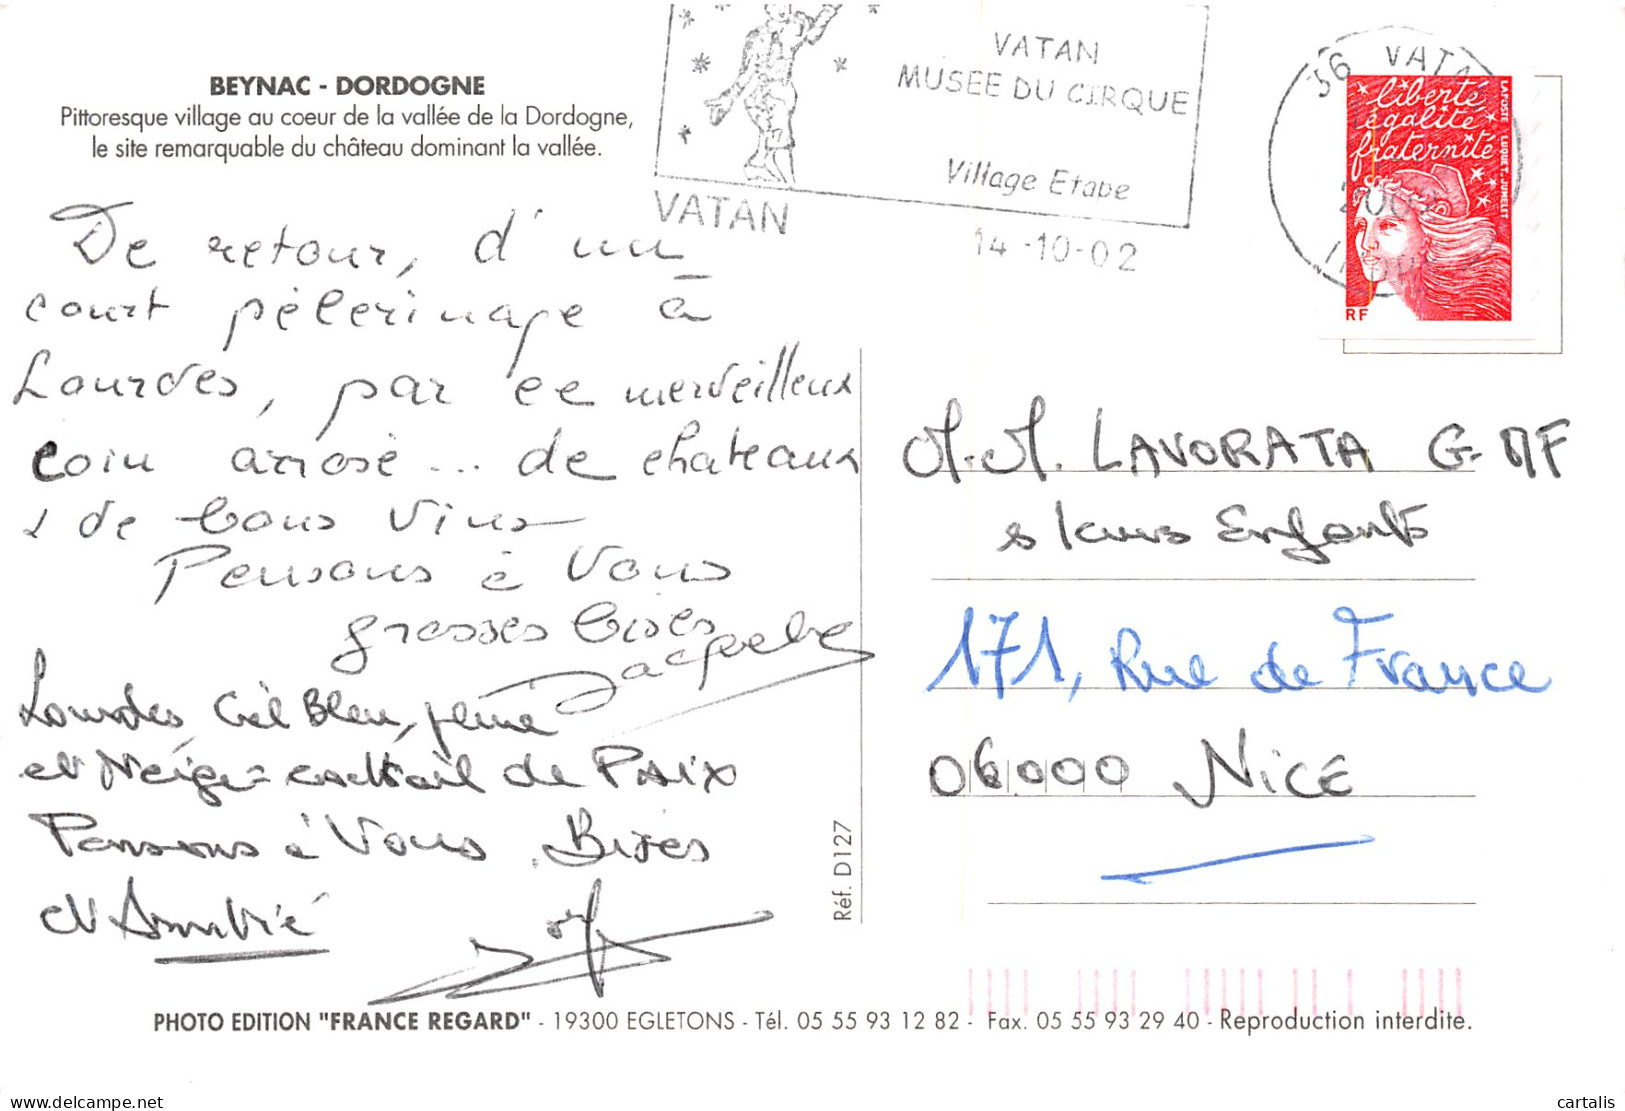 BEYNAC - DORDOGNE
Pittoresque village au coeur de la vallée de la Dordogne,
le site remarquable du château dominant la vallée.
VATAN
MUSEE DU CIRQUE
Village Etape
VATAN
14-10-02
36 VATAN
liberté
égalité
fraternité
LA POSTE LUQUET-JUMELET
RF
De retour, d'un
court pèlerinage à
Lourdes, par ce merveilleux
coin arrosé... de chateaux
& de bons vins
Pensons à Vous
grosses bises
Lourdes, Ciel Bleu, pluie
et Neige = cocktail de Paix
Pensons à Vous. Bises
et Amitié
M.M. LAVORATA G. MF
& leurs Enfants
171, Rue de France
06000 NICE
Réf. D127
PHOTO EDITION "FRANCE REGARD" - 19300 EGLETONS - Tél. 05 55 93 12 82 - Fax. 05 55 93 29 40 - Reproduction interdite.
cartalis